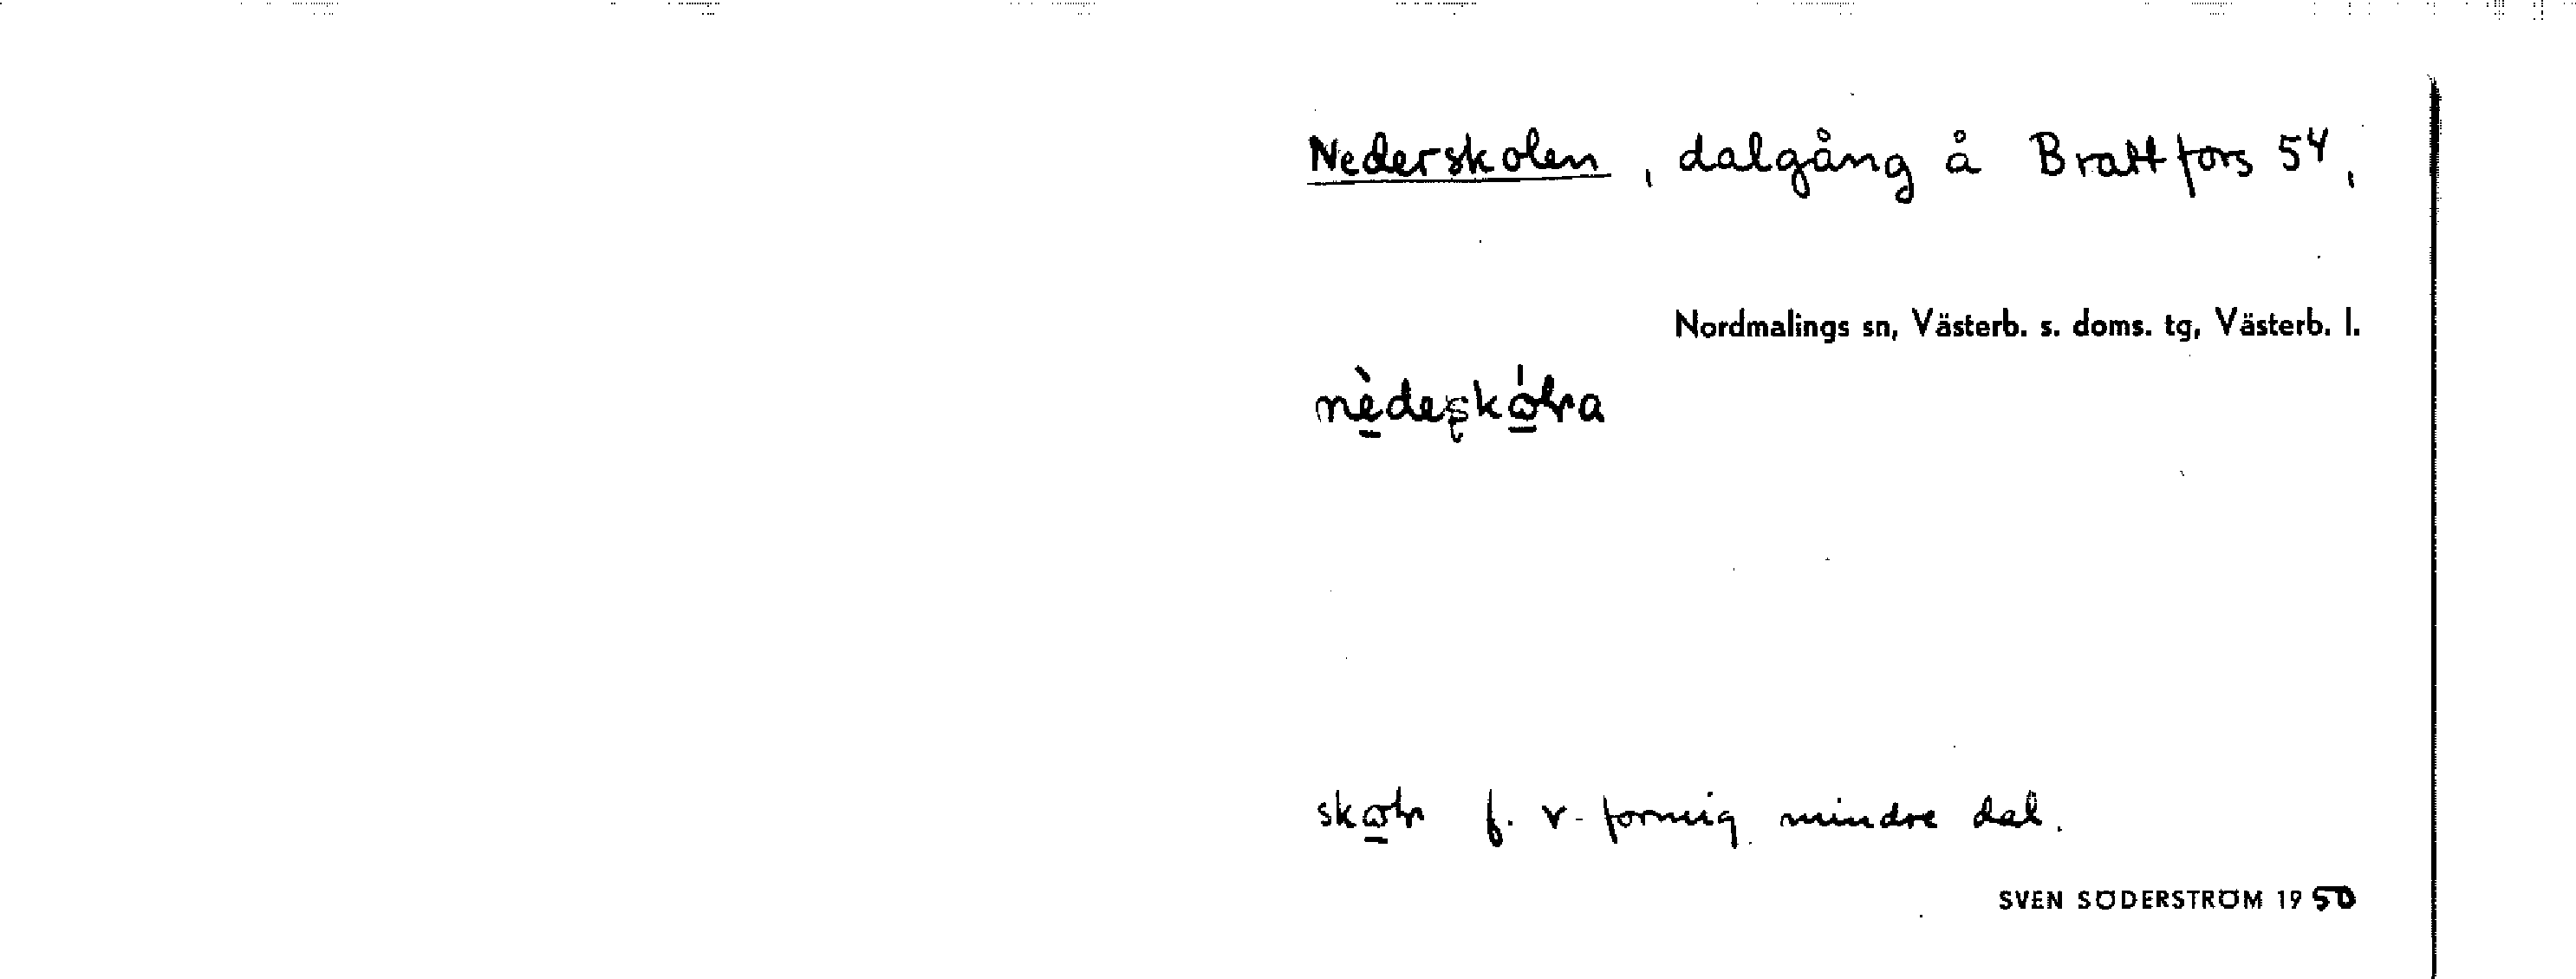 Nederskolen, dalgång å Brattfors 5⁴,
Nordmalings sn, Västerb. s. doms. tg, Västerb. l.
f. v-formig mindre dal.
SVEN SÖDERSTRÖM 1950